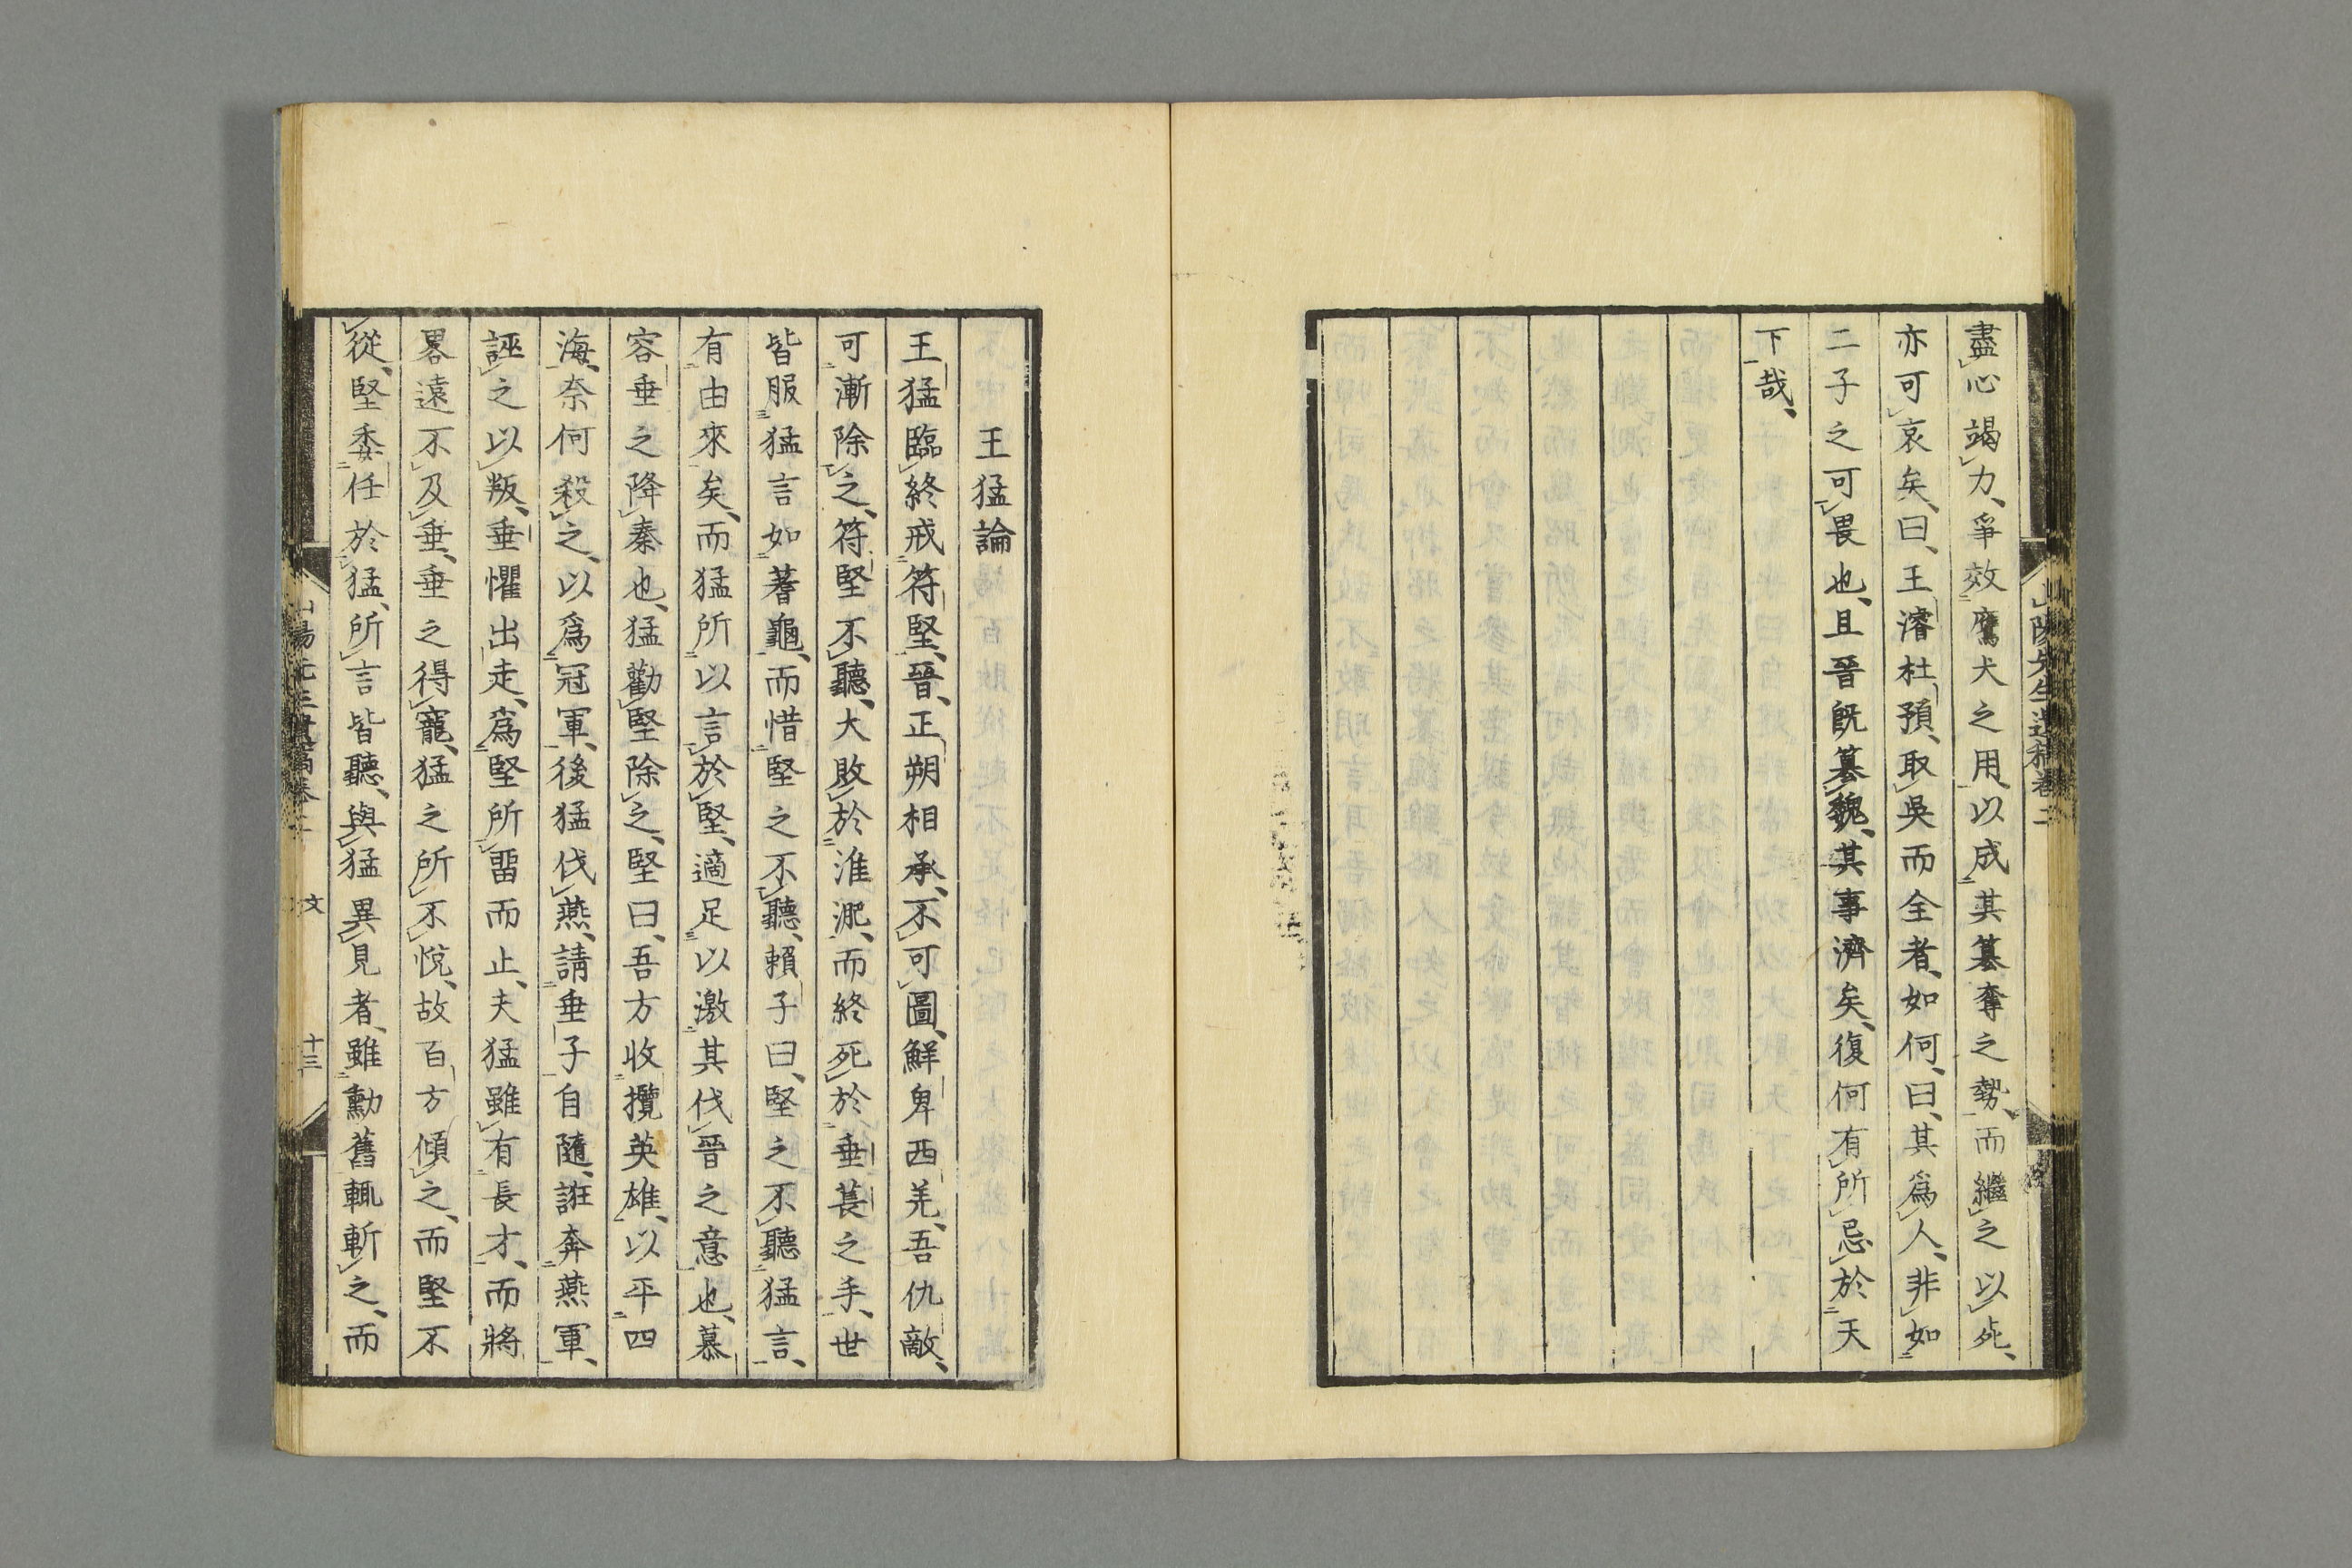 盡心竭力、爭效鷹犬之用、以成其簒奪之勢、而繼之以死、
亦可哀矣、曰、王濬杜預、取吳而全者、如何、曰、其爲人、非如
二子之可畏也、且晉既簒魏、其事濟矣、復何有所忌於天
下哉、
山陽先生遺稿卷二
王猛論
王猛臨終戒符堅、晉、正朔相承、不可圖、鮮卑西羌、吾仇敵、
可漸除之、符堅不聽、大敗於淮淝、而終死於垂萇之手、世
皆服猛言如蓍龜、而惜堅之不聽、賴子曰、堅之不聽猛言、
有由來矣、而猛所以言於堅、適足以激其伐晉之意也、慕
容垂之降秦也、猛勸堅除之、堅曰、吾方收攬英雄、以平四
海、奈何殺之、以爲冠軍、後猛伐燕、請垂子自隨、誑奔燕軍、
誣之以叛、垂懼出走、爲堅所畱而止、夫猛雖有長才、而將
畧遠不及垂、垂之得寵、猛之所不悅、故百方傾之、而堅不
從、堅委任於猛、所言皆聽、與猛異見者、雖勳舊輒斬之、而
山陽先生遺稿卷二 文 十三